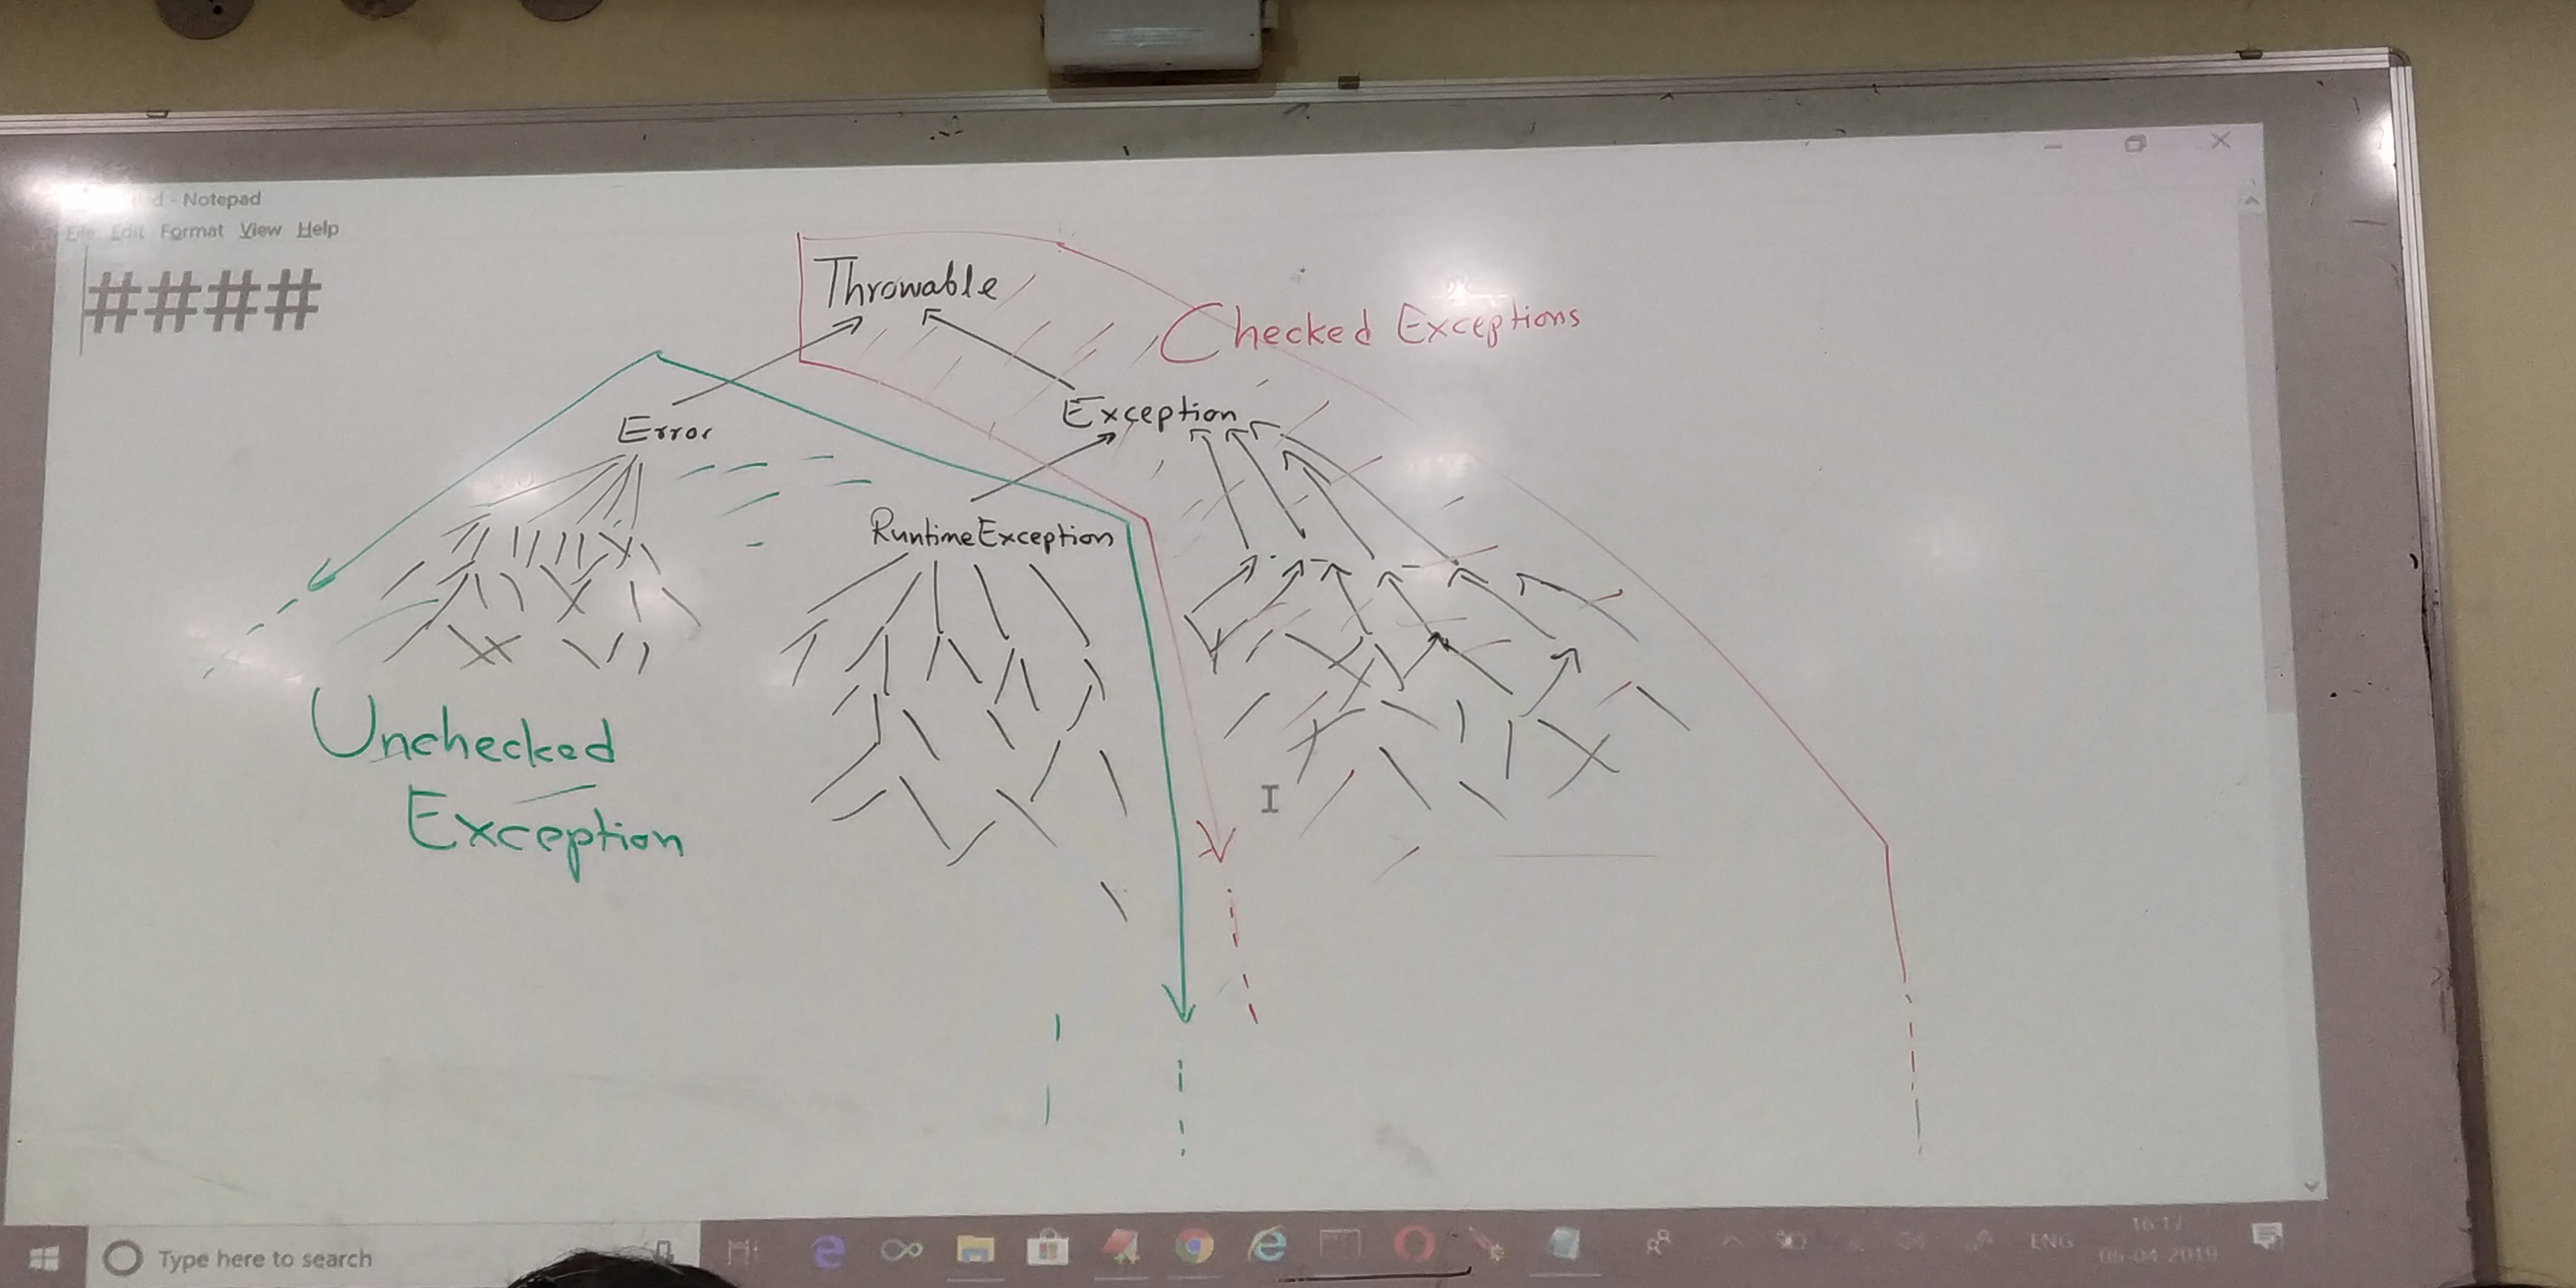 - Notepad
Edit Format View Help
####
Throwable
Checked Exceptions
Exception
Error
RuntimeException
Unchecked
Exception
Type here to search
ENG
16:17
05-04-2019